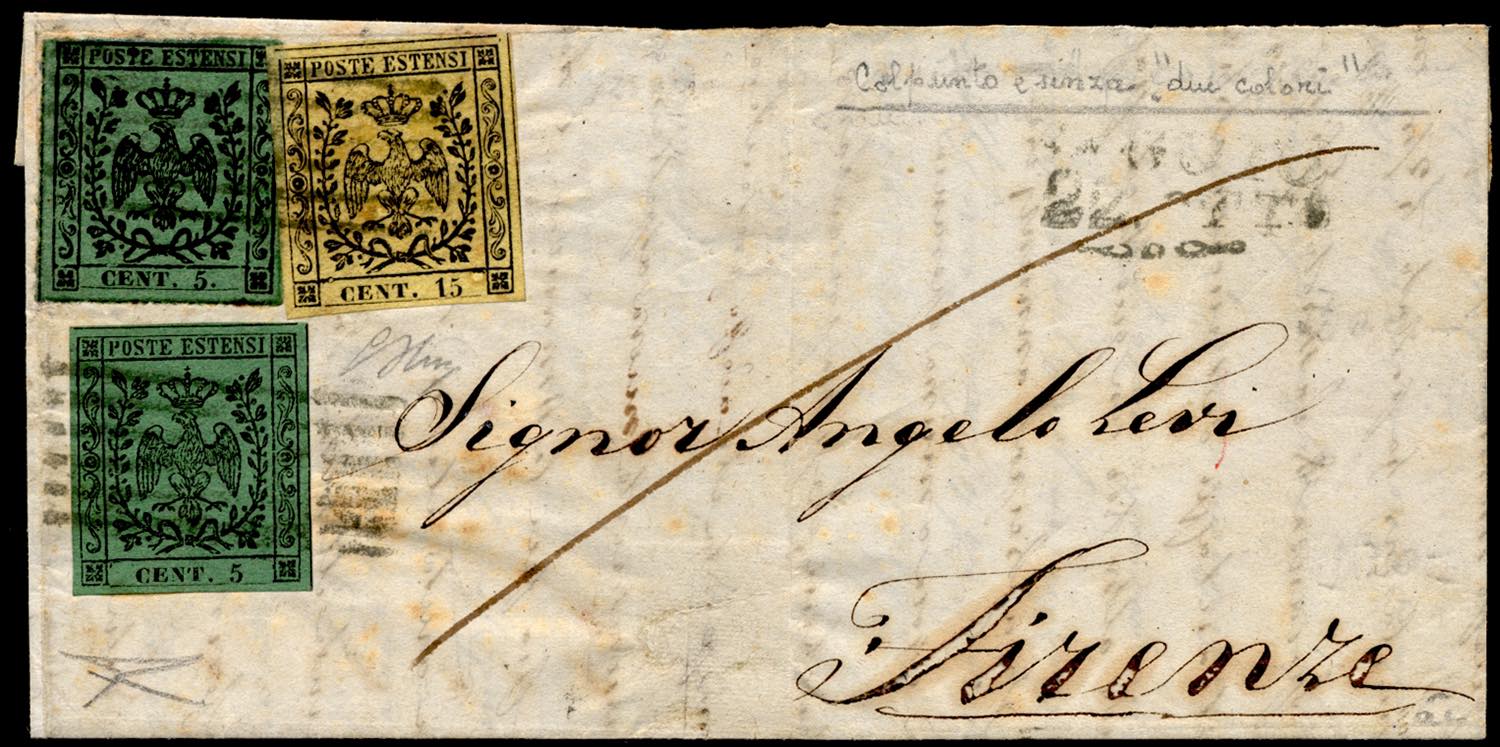 POSTE ESTENSI
CENT. 5.
POSTE ESTENSI
CENT. 15
POSTE ESTENSI
CENT. 5
Col punto e senza "due colori"
Signor Angelo Levi
Firenze